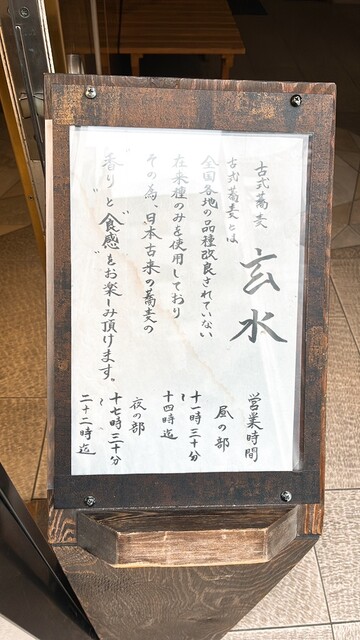 古式蕎麦
玄水
古式蕎麦とは
全国各地の品種改良されていない
在来種のみを使用しており
その為、日本古来の蕎麦の
”香り”と”食感”をお楽しみ頂けます。
営業時間
昼の部
十一時三十分
〜
十四時迄
夜の部
十七時三十分
〜
二十二時迄